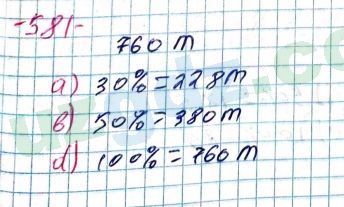 -581-
760 m
a) 30% = 228 m
b) 50% = 380 m
d) 100% = 760 m